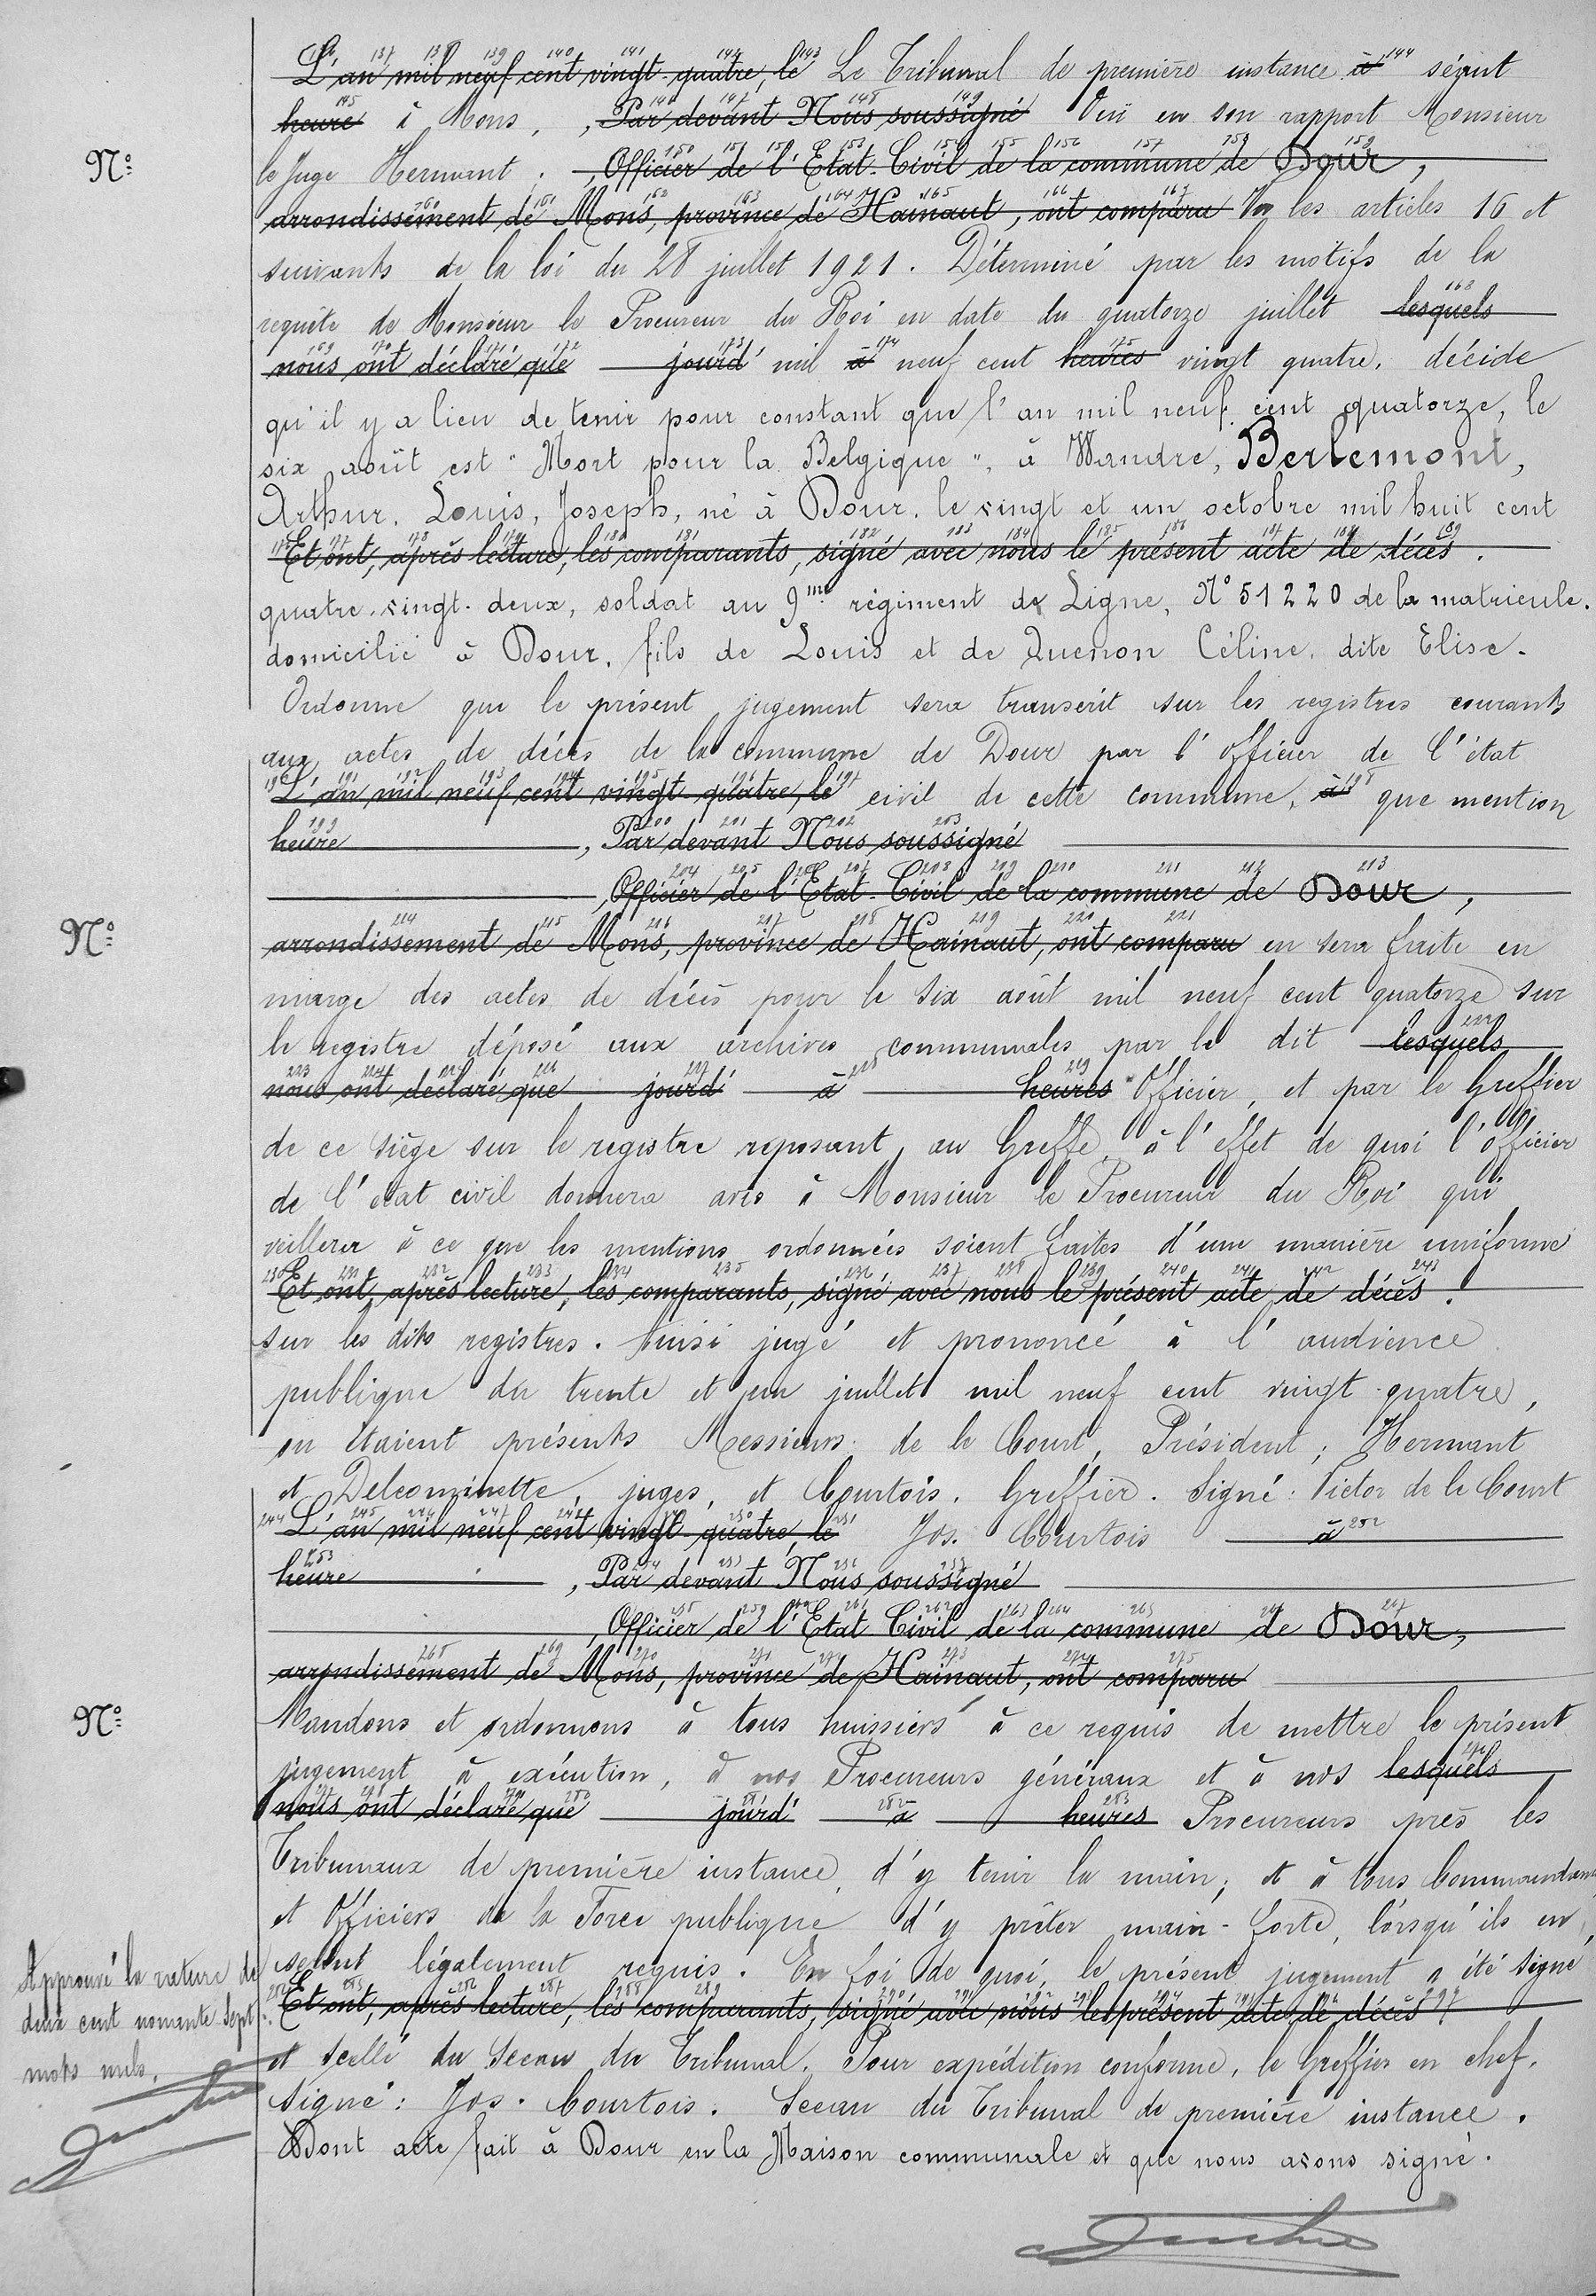 L'an mil neuf cent vingt-quatre, le Le Tribunal de première instance à séant
heure à Mons, , Par devant Nous soussigné Ouï en son rapport Monsieur
le Juge Hermant, , Officier de l'Etat-Civil de la commune de Dour,
arrondissement de Mons, province de Hainaut, ont comparu Vu les articles 16 et
suivants de la loi du 28 juillet 1921. Déterminé par les motifs de la
requête de Monsieur le Procureur du Roi en date du quatorze juillet lesquels
nous ont déclaré que jourd' mil à neuf cent heures vingt quatre, décide
qu'il y a lieu de tenir pour constant que l'an mil neuf cent quatorze, le
six août est "Mort pour la Belgique", à Wandre, Berlemont,
Arthur, Louis, Joseph, né à Dour, le vingt et un octobre mil huit cent
Et ont, après lecture, les comparants, signé avec nous le présent acte de décès.
quatre-vingt-deux, soldat au 9me régiment de Ligne, N° 51220 de la matricule,
domicilié à Dour, fils de Louis et de Quenon Céline, dite Elise.
Ordonne que le présent jugement sera transcrit sur les registres courants
aux actes de décès de la commune de Dour par l'officier de l'état
L'an mil neuf cent vingt-quatre, le civil de cette commune, à que mention
heure , Par devant Nous soussigné
, Officier de l'Etat-Civil de la commune de Dour,
N°
arrondissement de Mons, province de Hainaut, ont comparu en sera faite en
marge des actes de décès pour le six août mil neuf cent quatorze sur
le registre déposé aux archives communales par le dit lesquels
nous ont déclaré que jourd' à heures Officier, et par le Greffier
de ce siège sur le registre reposant au Greffe, à l'effet de quoi l'officier
de l'état civil donnera avis à Monsieur le Procureur du Roi qui
veillera à ce que les mentions ordonnées soient faites d'une manière uniforme
Et ont, après lecture, les comparants, signé avec nous le présent acte de décès.
sur les dits registres. Ainsi jugé et prononcé à l'audience
publique du trente et un juillet mil neuf cent vingt-quatre,
où étaient présents Messieurs de le Court, Président; Hermant
et Delcominette, juges, et Courtois, Greffier. Signé: Victor de le Court
L'an mil neuf cent vingt-quatre, le Jos. Courtois à
heure , Par devant Nous soussigné
, Officier de l'Etat Civil de la commune de Dour,
arrondissement de Mons, province de Hainaut, ont comparu
N°
Mandons et ordonnons à tous huissiers à ce requis de mettre le présent
jugement à exécution, à nos Procureurs généraux et à nos lesquels
nous ont déclaré que jourd' à heures Procureurs près les
Tribunaux de première instance, d'y tenir la main; et à tous Commandants
et Officiers de la Force publique d'y prêter main-forte, lorsqu'ils en
seront légalement requis. En foi de quoi, le présent jugement a été signé
Et ont, après lecture, les comparants, signé avec nous le présent acte de décès
et scellé du Sceau du Tribunal. Pour expédition conforme, le Greffier en chef,
Signé: Jos. Courtois. Sceau du Tribunal de première instance.
Dont acte fait à Dour en la Maison communale et que nous avons signé.
N°
Approuvé la rature de
deux cent nonante sept
mots nuls.